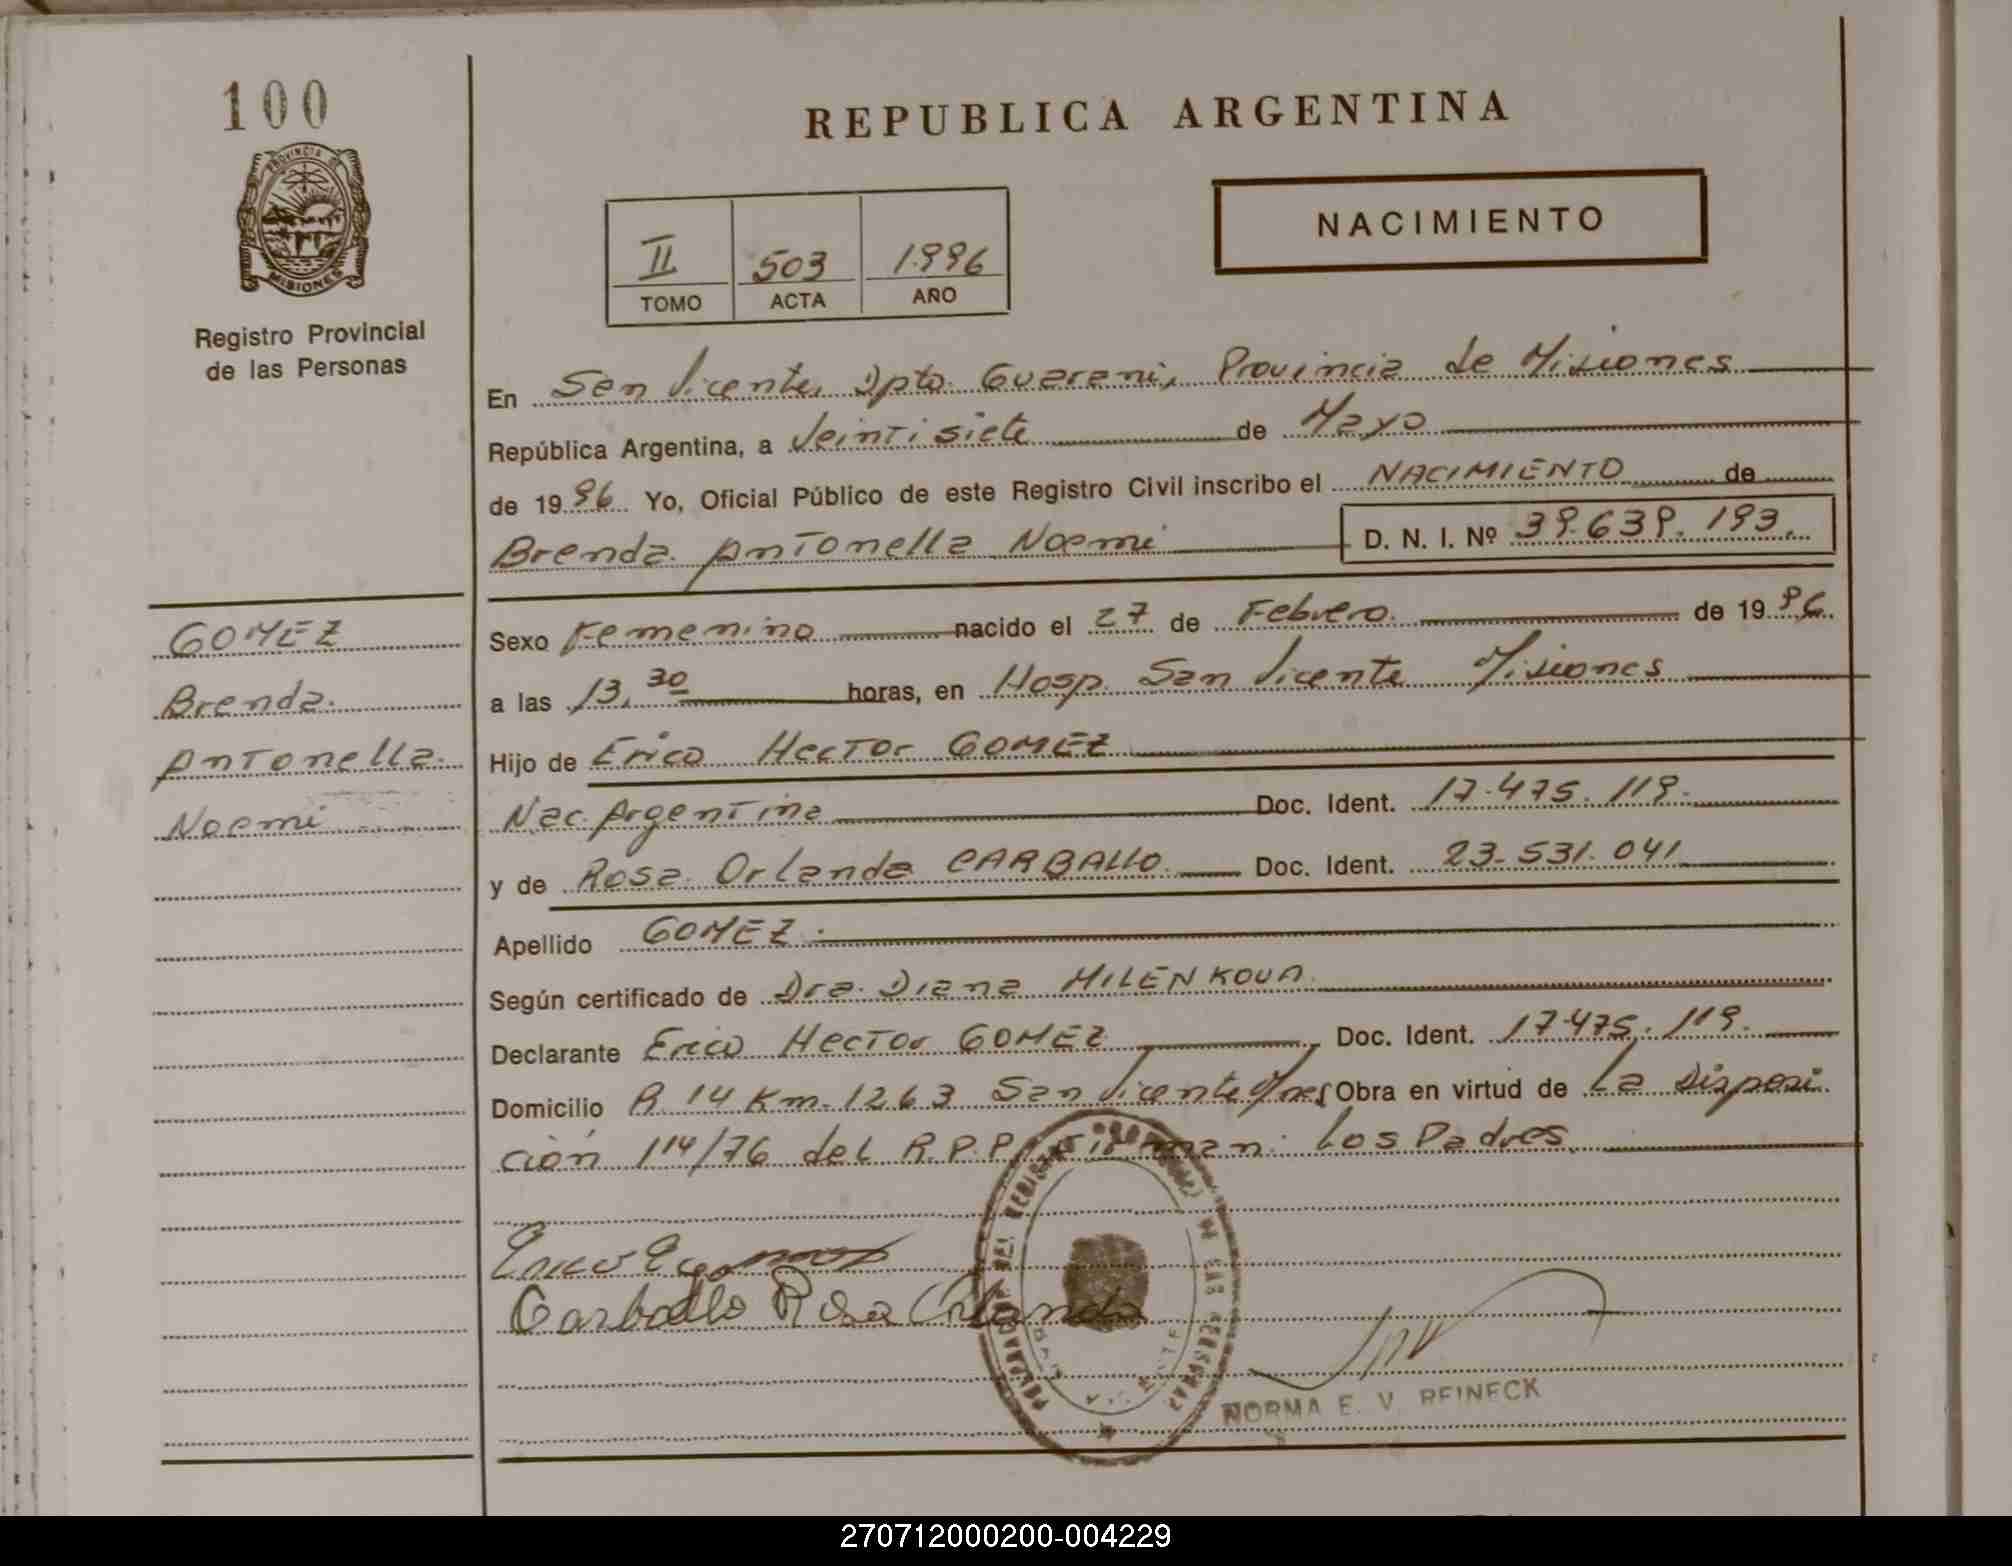 100
PROVINCIA DE
MISIONES
Registro Provincial
de las Personas
REPUBLICA ARGENTINA
NACIMIENTO
II 503 1.996
TOMO ACTA AÑO
En San Vicente, Dpto. Guarani, Provincia de Misiones
República Argentina, a Veintisiete de Mayo
de 1996 Yo, Oficial Público de este Registro Civil inscribo el NACIMIENTO de
Brenda Antonella Noemi D. N. I. Nº 39.639.193.
GOMEZ
Brenda.
Antonella.
Noemi
Sexo Femenino nacido el 27 de Febrero. de 1996.
a las 13,30 horas, en Hosp. San Vicente Misiones
Hijo de Erico Hector GOMEZ
Nac. Argentina Doc. Ident. 17.475.119.
y de Rosa Orlanda CARBALLO. Doc. Ident. 23.531.041
Apellido GOMEZ.
Según certificado de Dra. Diana MILENKOVA.
Declarante Erico Hector GOMEZ Doc. Ident. 17.475.119.
Domicilio R. 14 Km. 1263 San Vicente Mnes Obra en virtud de La Disposi
ción 114/76 del R.P.P. Firman: Los Padres
Carballo Rosa Orlanda
NORMA E. V. REINECK
270712000200-004229